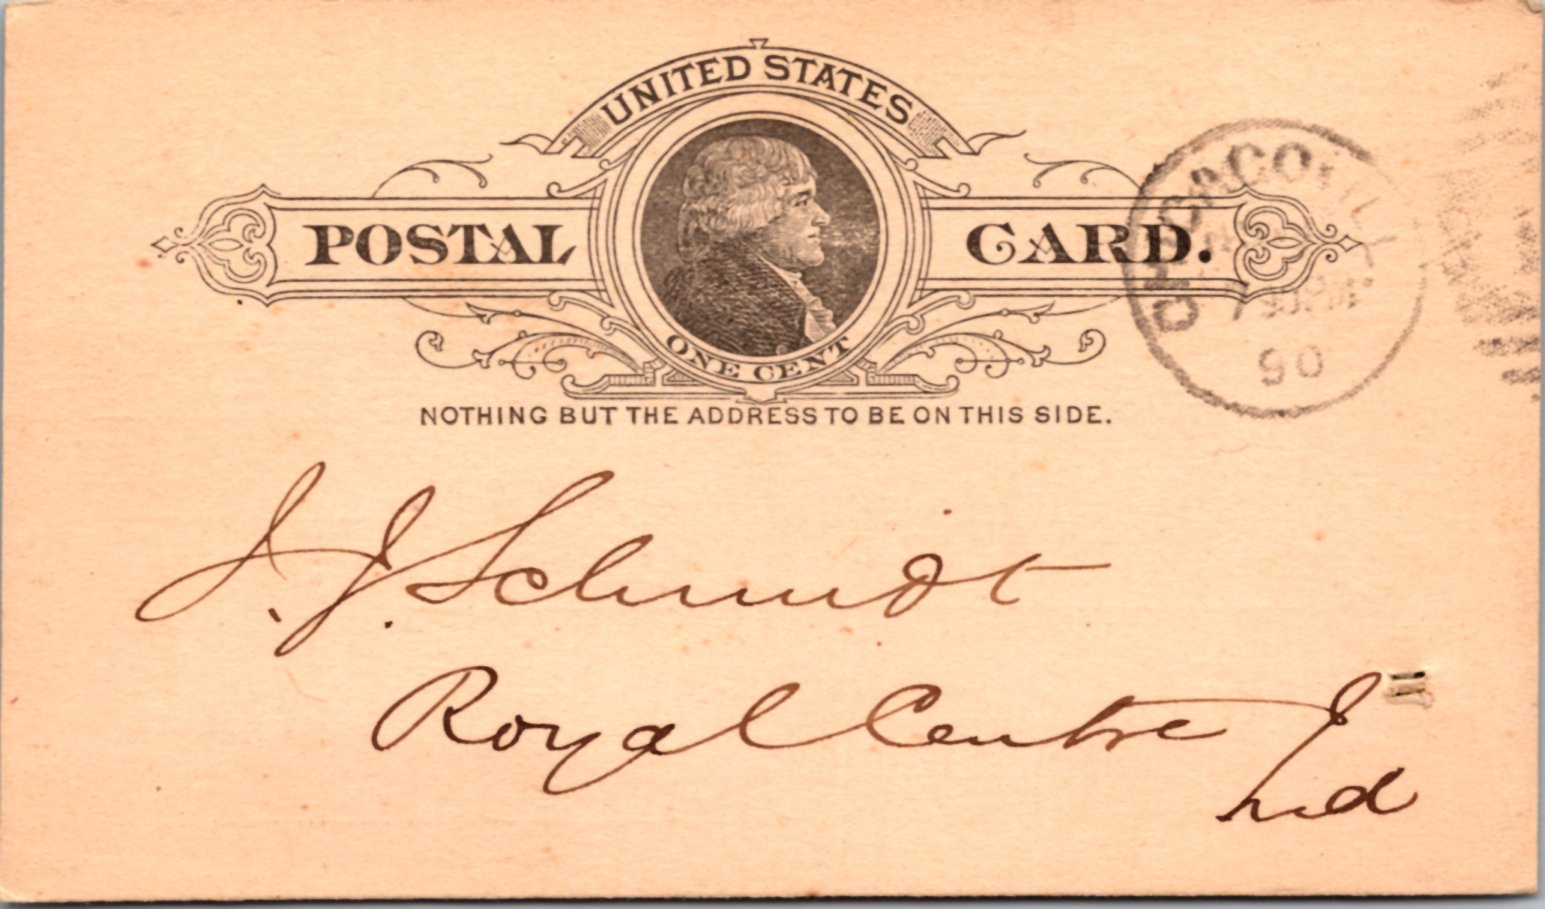 UNITED STATES
POSTAL CARD.
ONE CENT
NOTHING BUT THE ADDRESS TO BE ON THIS SIDE.
CHICAGO, ILL.
90
J. J. Schmidt
Royal Centre
Ind